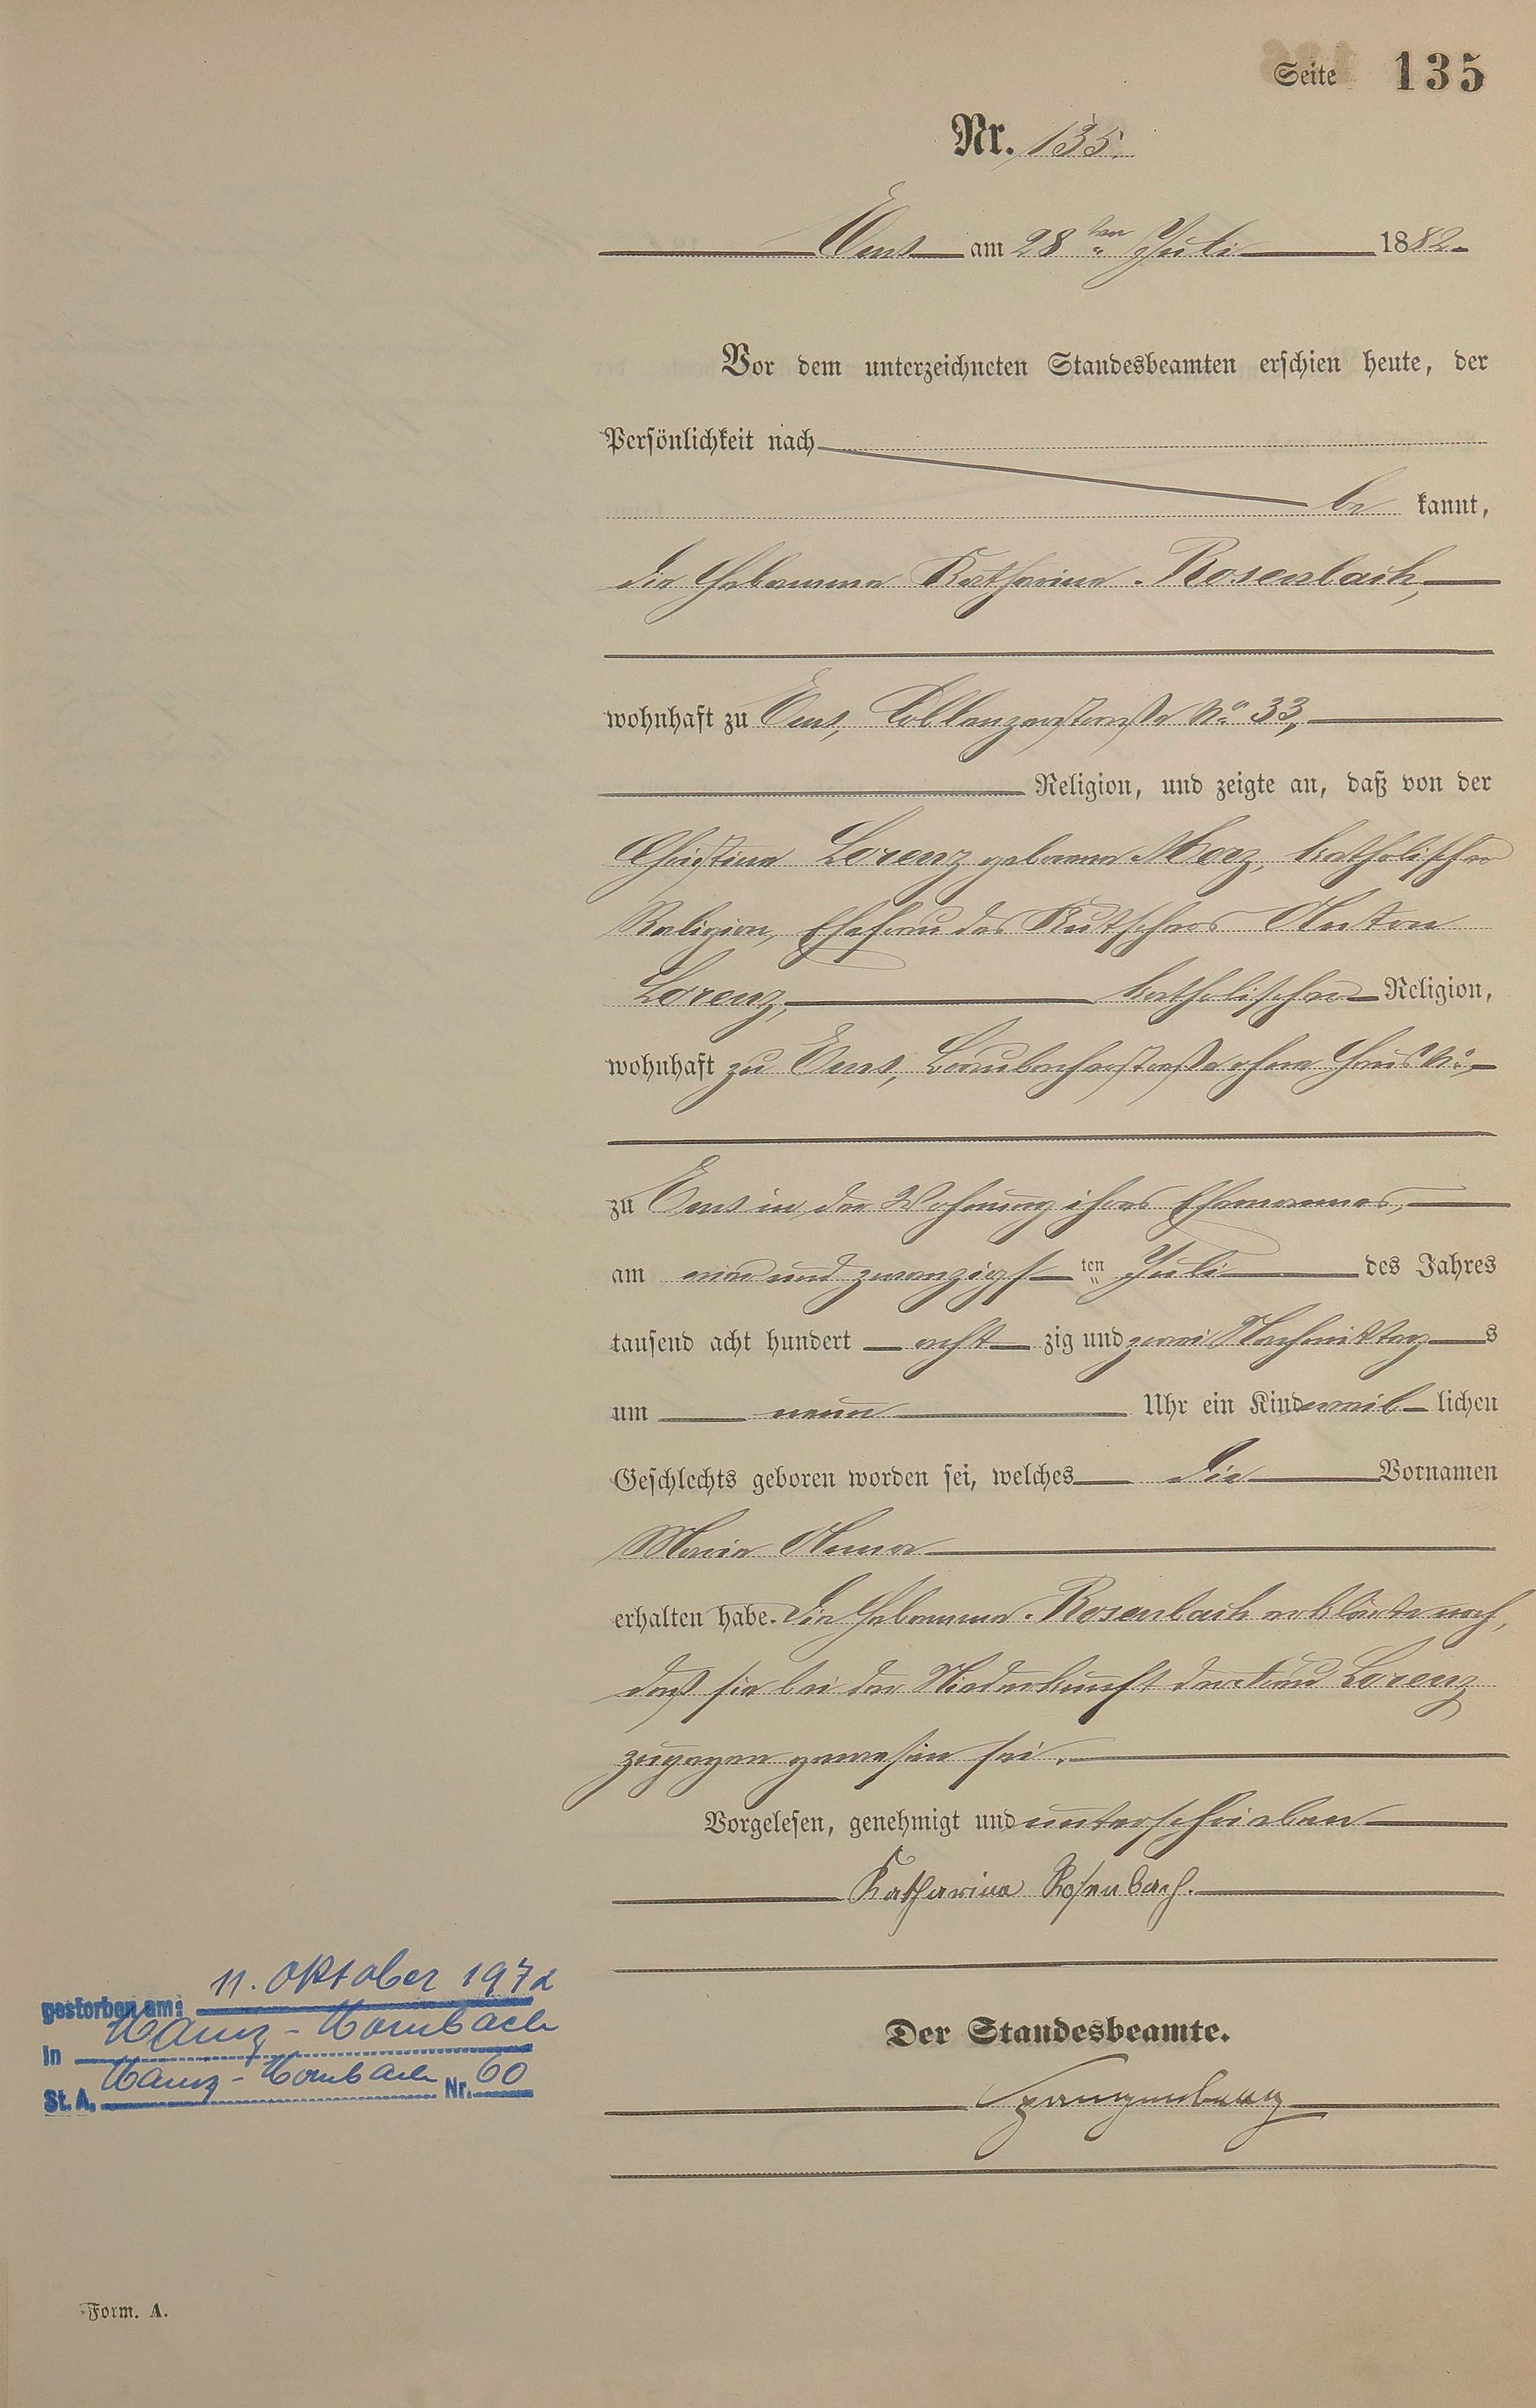 Seite 135
Nr. 135.
Ems am 28 ten Juli 1882
Vor dem unterzeichneten Standesbeamten erschien heute, der
Persönlichkeit nach
be kannt,
die Hebamme Katharina Rosenbach,
wohnhaft zu Ems, Coblenzerstraße No 33,
Religion, und zeigte an, daß von der
Christina Lorenz geborene Morz, katholischer
Religion, Ehefrau des Kutschers Anton
Lorenz, katholischer Religion,
wohnhaft zu Ems, Braubacherstraße ohne Haus No,
zu Ems in der Wohnung ihres Ehemannes,
am ein und zwanzigs ten Juli des Jahres
tausend acht hundert acht zig und zwei Nachmittag s
um neun Uhr ein Kind weib lichen
Geschlechts geboren worden sei, welches die Vornamen
Maria Anna
erhalten habe. Die Hebamme Rosenbach erklärte noch,
daß sie bei der Niederkunft der Frau Lorenz
zugegen gewesen sei.
Vorgelesen, genehmigt und unterschrieben
Katharina Rosenbach.
Der Standesbeamte.
Spangenberg
gestorben am: 11. Oktober 1972
in Mainz-Mombach
St. A. Mainz-Mombach Nr. 60
Form. A.